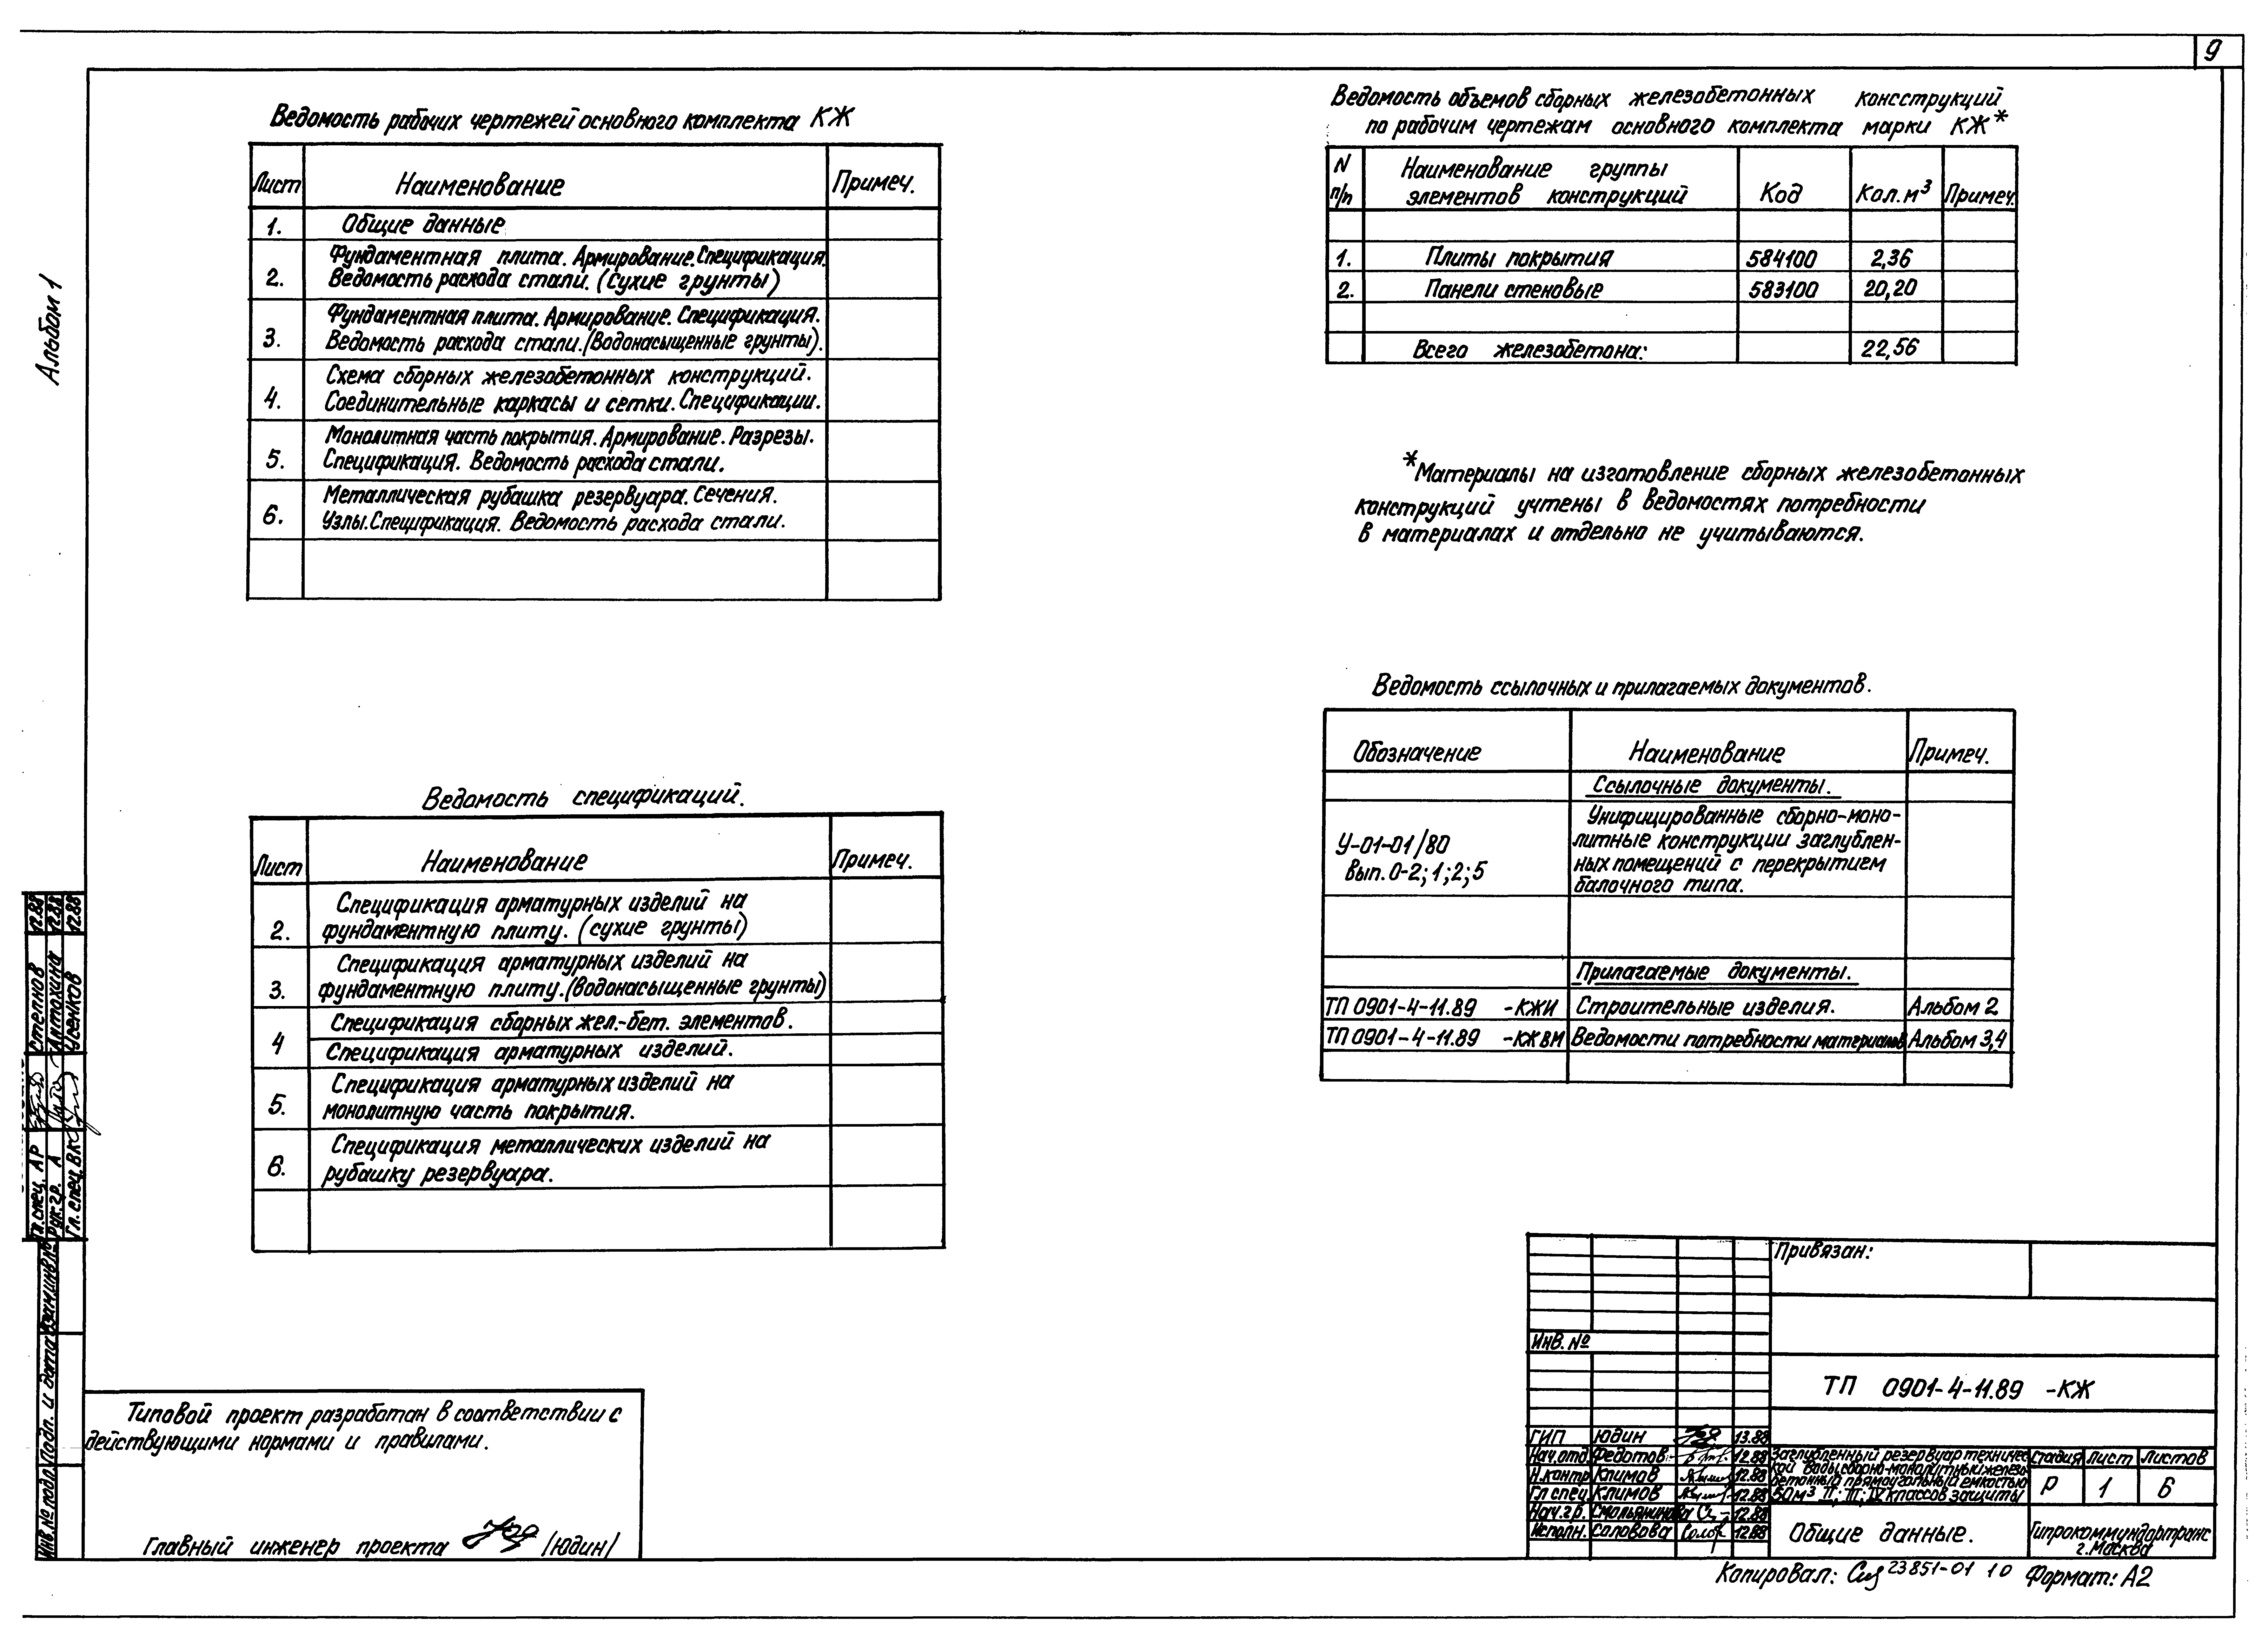 9
Альбом 1
Ведомость рабочих чертежей основного комплекта КЖ
Лист Наименование Примеч.
1. Общие данные
Фундаментная плита. Армирование. Спецификация.
2. Ведомость расхода стали. (Сухие грунты)
Фундаментная плита. Армирование. Спецификация.
3. Ведомость расхода стали. (Водонасыщенные грунты).
Схема сборных железобетонных конструкций.
4. Соединительные каркасы и сетки. Спецификации.
Монолитная часть покрытия. Армирование. Разрезы.
5. Спецификация. Ведомость расхода стали.
Металлическая рубашка резервуара. Сечения.
6. Узлы. Спецификация. Ведомость расхода стали.
Ведомость спецификаций.
Лист Наименование Примеч.
Спецификация арматурных изделий на
2. фундаментную плиту. (сухие грунты)
Спецификация арматурных изделий на
3. фундаментную плиту. (водонасыщенные грунты)
Спецификация сборных жел.-бет. элементов.
4
Спецификация арматурных изделий.
Спецификация арматурных изделий на
5. монолитную часть покрытия.
Спецификация металлических изделий на
6. рубашку резервуара.
Ведомость объемов сборных железобетонных консструкций
по рабочим чертежам основного комплекта марки КЖ*
N п/п Наименование группы элементов конструкций Код Кол.м³ Примеч.
1. Плиты покрытия 584100 2,36
2. Панели стеновые 583100 20,20
Всего железобетона: 22,56
*Материалы на изготовление сборных железобетонных
конструкций учтены в ведомостях потребности
в материалах и отдельно не учитываются.
Ведомость ссылочных и прилагаемых документов.
Обозначение Наименование Примеч.
Ссылочные документы.
У-01-01/80
Вып. 0-2; 1; 2; 5
Унифицированные сборно-моно-
литные конструкции заглублен-
ных помещений с перекрытием
балочного типа.
Прилагаемые документы.
ТП 0901-4-11.89 -КЖИ Строительные изделия. Альбом 2
ТП 0901-4-11.89 -КЖВМ Ведомости потребности материалов Альбом 3,4
Гл. спец. АР Степнов 12.88
Рук. гр. А Антохина 12.88
Гл. спец. ВК Усенков 12.88
Инв.№ подл. Подп. и дата Взам.инв.№
Типовой проект разработан в соответствии с
действующими нормами и правилами.
Главный инженер проекта /Юдин/
Привязан:
Инв. №
ТП 0901-4-11.89 -КЖ
ГИП Юдин 13.88
Нач.отд. Федотов 12.88
Н.контр Климов 12.88
Гл спец. Климов 12.88
Нач.гр. Смольянинова 12.88
Исполн. Соловова 12.88
Заглубленный резервуар техничес-
кой воды, сборно-монолитный железо-
бетонный прямоугольный емкостью
50м³ II; III; IV классов защиты
Стадия Лист Листов
Р 1 6
Общие данные.
Гипрокоммундортранс
г. Москва
Копировал: 23851-01 10 Формат: А2